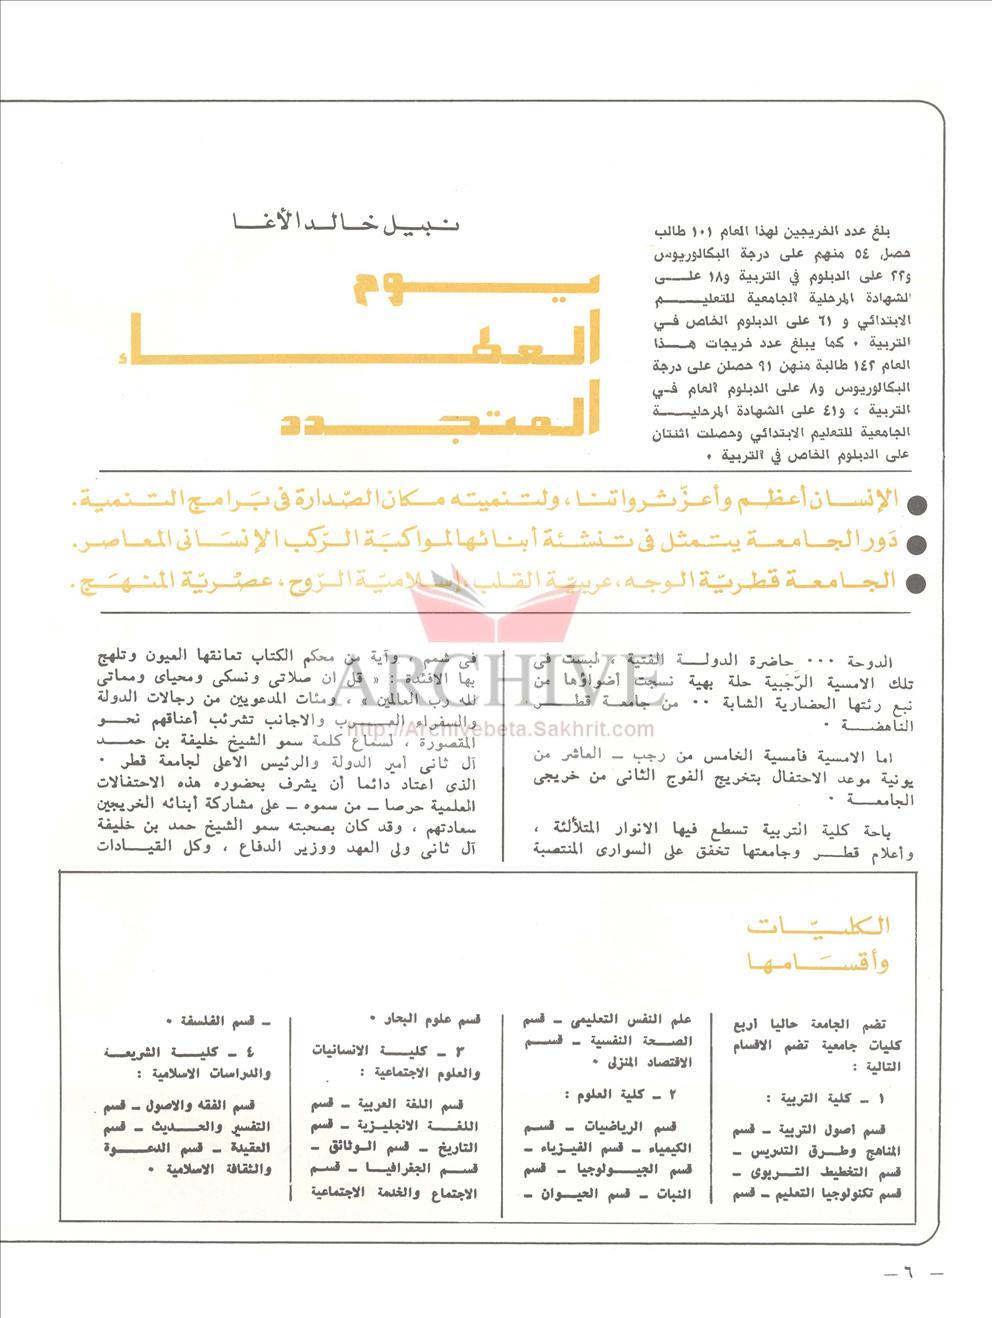 نبيل خالد الأغا
يوم
العطاء
المتجدد
بلغ عدد الخريجين لهذا العام ١٠١ طالب
حصل ٥٤ منهم على درجة البكالوريوس
و٢٢ على الدبلوم في التربية و١٨ على
الشهادة المرحلية الجامعية للتعليم
الابتدائي و ٦١ على الدبلوم الخاص في
التربية ٠ كما يبلغ عدد خريجات هذا
العام ١٤٢ طالبة منهن ٩١ حصلن على درجة
البكالوريوس و٨ على الدبلوم العام في
التربية ، و٤١ على الشهادة المرحلية
الجامعية للتعليم الابتدائي وحصلت اثنتان
على الدبلوم الخاص في التربية ٠
● الإنسان أعظم وأعز ثرواتنا، ولتنميته مكان الصدارة فى برامج التنمية.
● دور الجامعة يتمثل فى تنشئة أبنائها لمواكبة الركب الإنسانى المعاصر.
● الجامعة قطرية الوجه، عربية القلب، إسلامية الروح، عصرية المنهج.
الدوحة ٠٠٠ حاضرة الدولة الفتية ، لبست فى
تلك الامسية الرجبية حلة بهية نسجت أضواؤها من
نبع رئتها الحضارية الشابة ٠٠ من جامعة قطر
الناهضة ٠
اما الامسية فأمسية الخامس من رجب ـ العاشر من
يونية موعد الاحتفال بتخريج الفوج الثانى من خريجى
الجامعة ٠
باحة كلية التربية تسطع فيها الانوار المتلألئة ،
وأعلام قطر وجامعتها تخفق على السوارى المنتصبة
فى شمم ، وآية من محكم الكتاب تعانقها العيون وتلهج
بها الافئدة : « قل ان صلاتى ونسكى ومحياى ومماتى
لله رب العالمين » ، ومئات المدعويين من رجالات الدولة
والسفراء العرب والاجانب تشرئب أعناقهم نحو
المقصورة ، لسماع كلمة سمو الشيخ خليفة بن حمد
آل ثانى أمير الدولة والرئيس الاعلى لجامعة قطر ٠
الذى اعتاد دائما أن يشرف بحضوره هذه الاحتفالات
العلمية حرصا ـ من سموه ـ على مشاركة أبنائه الخريجين
سعادتهم ، وقد كان بصحبته سمو الشيخ حمد بن خليفة
آل ثانى ولى العهد ووزير الدفاع ، وكل القيادات
ARCHIVE
http://Archivebeta.Sakhrit.com
الكليات
وأقسامها
تضم الجامعة حاليا أربع
كليات جامعية تضم الاقسام
التالية :
١ ـ كلية التربية :
قسم أصول التربية ـ قسم
المناهج وطرق التدريس ـ
قسم التخطيط التربوى ـ
قسم تكنولوجيا التعليم ـ قسم
علم النفس التعليمى ـ قسم
الصحة النفسية ـ قسم
الاقتصاد المنزلى ٠
٢ ـ كلية العلوم :
قسم الرياضيات ـ قسم
الكيمياء ـ قسم الفيزياء ـ
قسم الجيولوجيا ـ قسم
النبات ـ قسم الحيوان ـ
قسم علوم البحار ٠
٣ ـ كلية الانسانيات
والعلوم الاجتماعية :
قسم اللغة العربية ـ قسم
اللغة الانجليزية ـ قسم
التاريخ ـ قسم الوثائق ـ
قسم الجغرافيا ـ قسم
الاجتماع والخدمة الاجتماعية
ـ قسم الفلسفة ٠
٤ ـ كلية الشريعة
والدراسات الاسلامية :
قسم الفقه والاصول ـ قسم
التفسير والحديث ـ قسم
العقيدة ـ قسم الدعوة
والثقافة الاسلامية ٠
— ٦ —